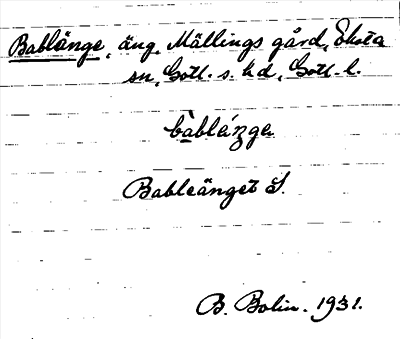 Bablänge, äng, Mällings gård, Eksta
sn, Gotl. s. hd, Gotl. l.
Bableänget S.
B. Bolin. 1931.